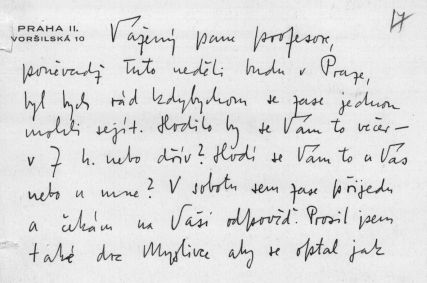 PRAHA II.
VORŠILSKÁ 10
17
Vážený pane profesore,
poněvadž tuto neděli budu v Praze,
byl bych rád kdybychom se zase jednou
mohli sejít. Hodilo by se Vám to večer –
v 7 h. nebo dřív? Hodí se Vám to u Vás
nebo u mne? V sobotu sem zase přijedu
a čekám na Vaši odpověď. Prosil jsem
také dra Myslivce aby se optal jak